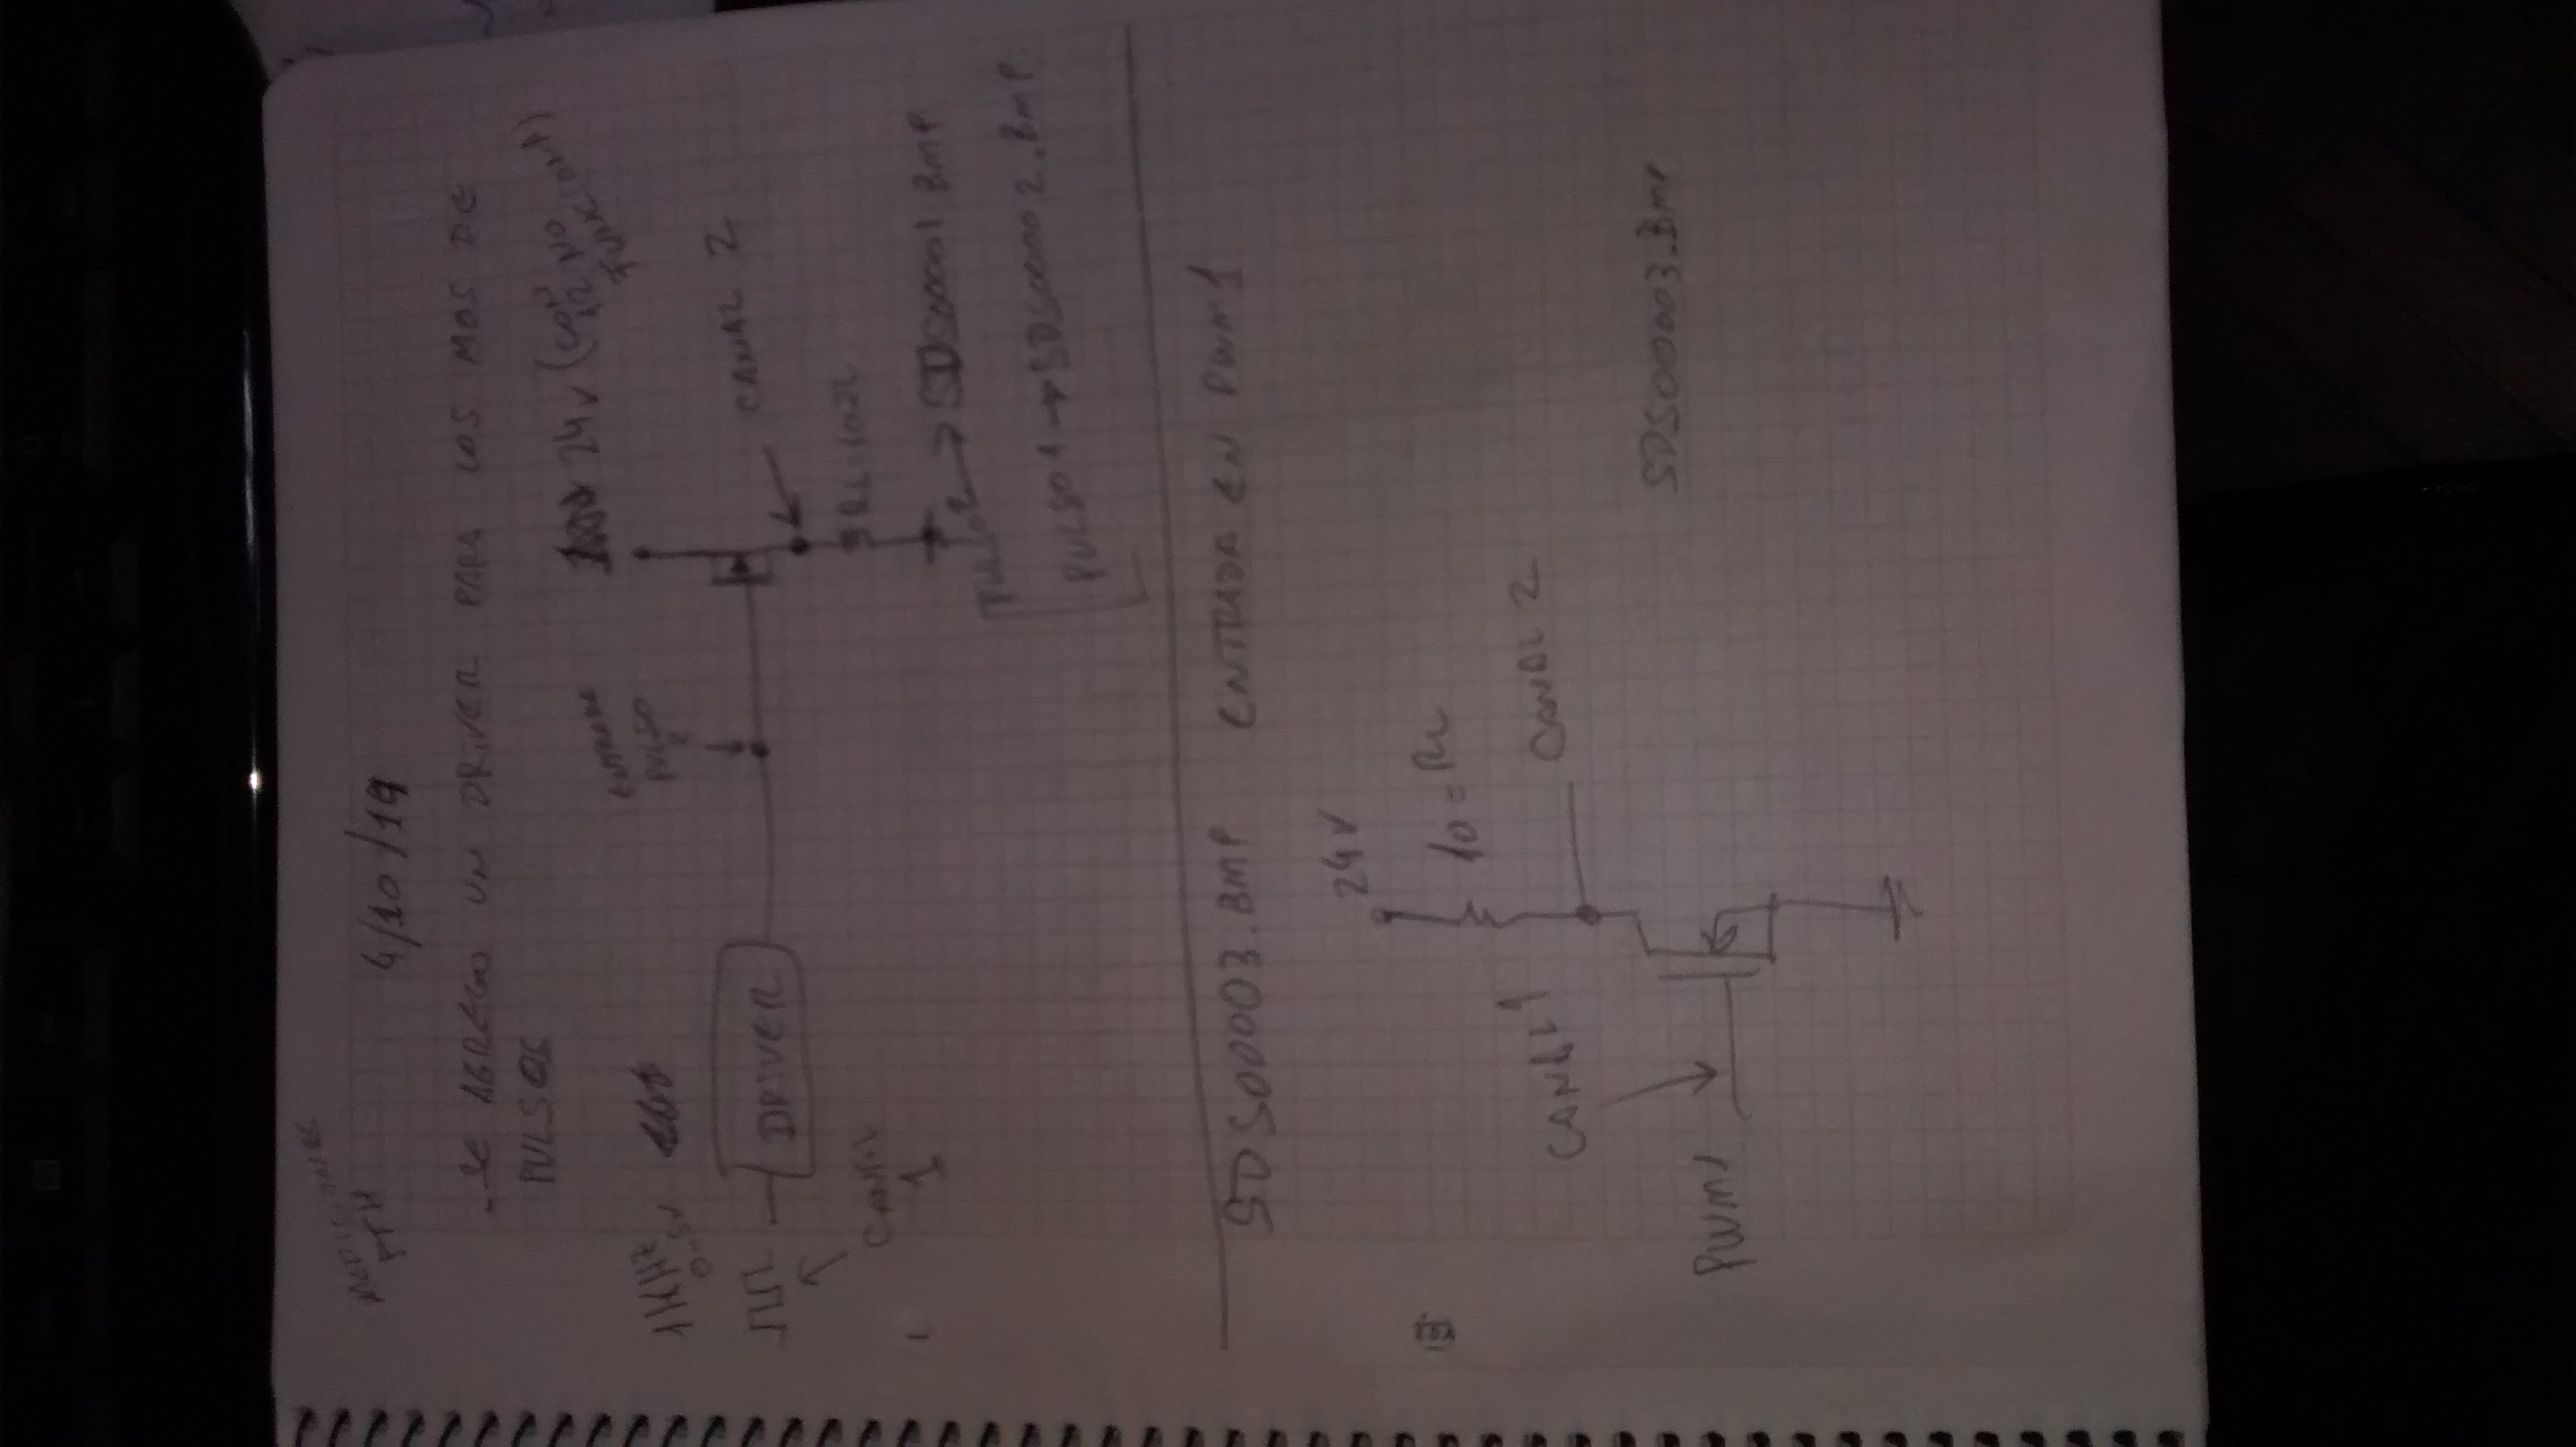 MEDICIONES
PTH
4/10/19
- SE AGREGO UN DRIVER PARA LOS MOS DE
PULSOS
1KHZ
0-5V
ENTRADA
PULSO
2
24V (CON
12 NO
FUNCIONA)
DRIVER
CANAL 2
CANAL
1
RL=10Ω
PULSO 2 → SDS00001 BMP
PULSO 1 → SDS00002.BMP
SDS00003.BMP ENTRADA EN PWM1
24V
10 = RL
CANAL 1
CANAL 2
PWM1
SDS00003.BMP